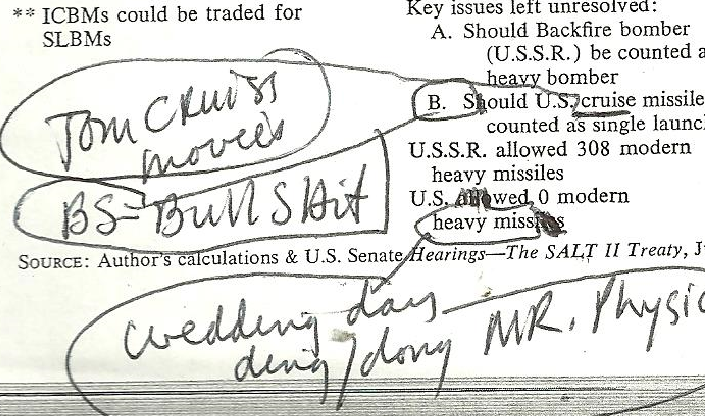 ** ICBMs could be traded for
SLBMs
Key issues left unresolved:
A. Should Backfire bomber
(U.S.S.R.) be counted a
heavy bomber
B. Should U.S. cruise missile
counted as single launc
U.S.S.R. allowed 308 modern
heavy missiles
U.S. allowed 0 modern
heavy missiles
Tom CRUISS
movees
BS=BullSHit
SOURCE: Author's calculations & U.S. Senate Hearings—The SALT II Treaty, J
wedding day
ding/dong MR. Physic